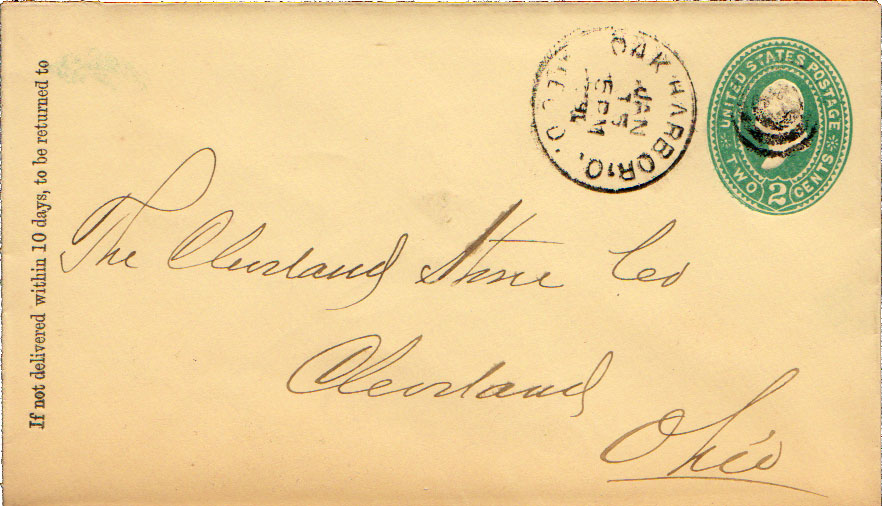 If not delivered within 10 days, to be returned to
OAK HARBOR, O.
JAN
15
5 PM
UNITED STATES POSTAGE
TWO 2 CENTS
The Cleveland Stone Co
Cleveland
Ohio